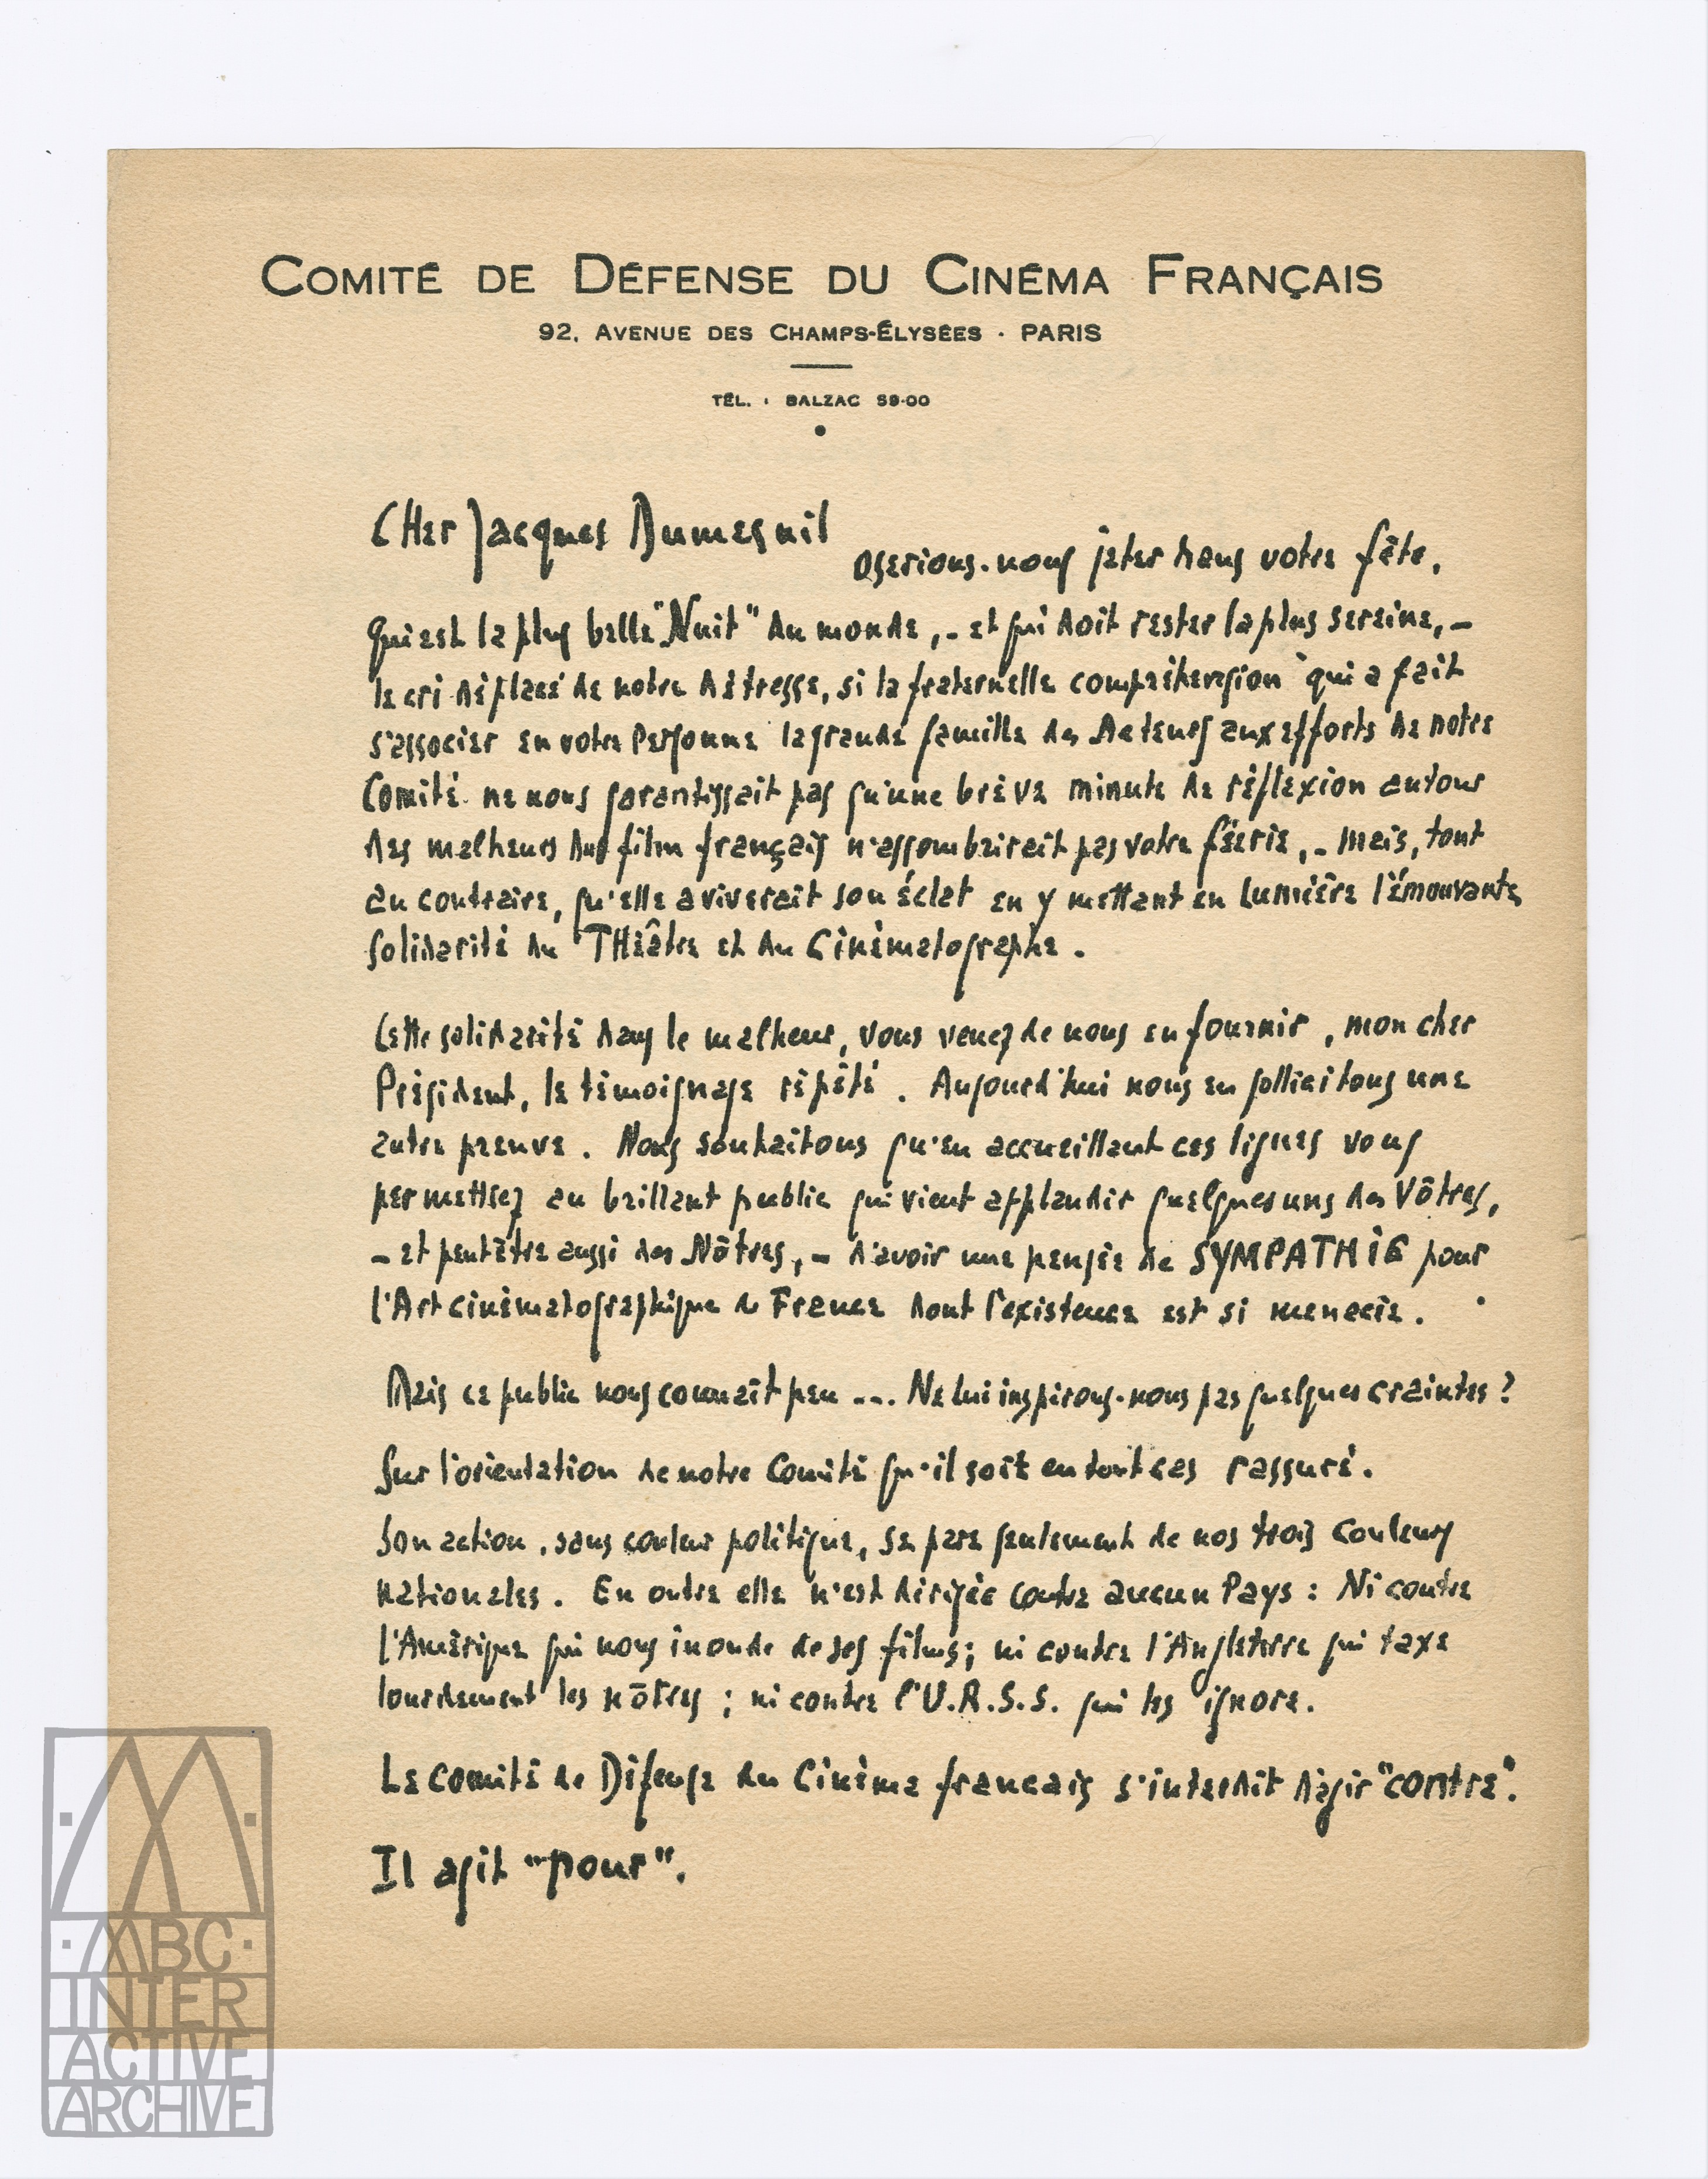 COMITÉ DE DÉFENSE DU CINÉMA FRANÇAIS
92, AVENUE DES CHAMPS-ÉLYSÉES · PARIS
TÉL. : BALZAC 59-00
CHer Jacques Dumesnil
oserions-nous jeter dans votre fête,
qui est la plus belle "Nuit" du monde, - et qui doit rester la plus sereine, -
le cri déplacé de notre détresse, si la fraternelle compréhension qui a fait
s'associer en votre Personne la grande famille des Acteurs aux efforts de notre
Comité ne nous garantissait pas qu'une brève minute de réflexion autour
des malheurs du film français n'assombrirait pas votre féerie, - mais, tout
au contraire, qu'elle aviverait son éclat en y mettant en lumière l'émouvante
solidarité du THéâtre et du Cinématographe.
Cette solidarité dans le malheur, vous venez de nous en fournir, mon cher
Président, le témoignage répété. Aujourd'hui nous en sollicitons une
autre preuve. Nous souhaitons qu'en accueillant ces lignes vous
permettrez au brillant public qui vient applaudir quelques uns des Vôtres,
- et peut être aussi des Nôtres, - d'avoir une pensée de SYMPATHiE pour
l'Art cinématographique de France dont l'existence est si menacée.
Mais ce public nous connaît peu .... Ne lui inspirons-nous pas quelques craintes ?
Sur l'orientation de notre Comité qu'il soit en tout cas rassuré.
Son action, sans couleur politique, se pare seulement de nos trois couleurs
nationales. En outre elle n'est dirigée contre aucun Pays : Ni contre
l'Amérique qui nous inonde de ses films ; ni contre l'Angleterre qui taxe
lourdement les nôtres ; ni contre l'U.R.S.S. qui les ignore.
Le Comité de Défense du Cinéma francais s'interdit d'agir "contre".
Il agit "pour".
ABC
INTER
ACTIVE
ARCHIVE